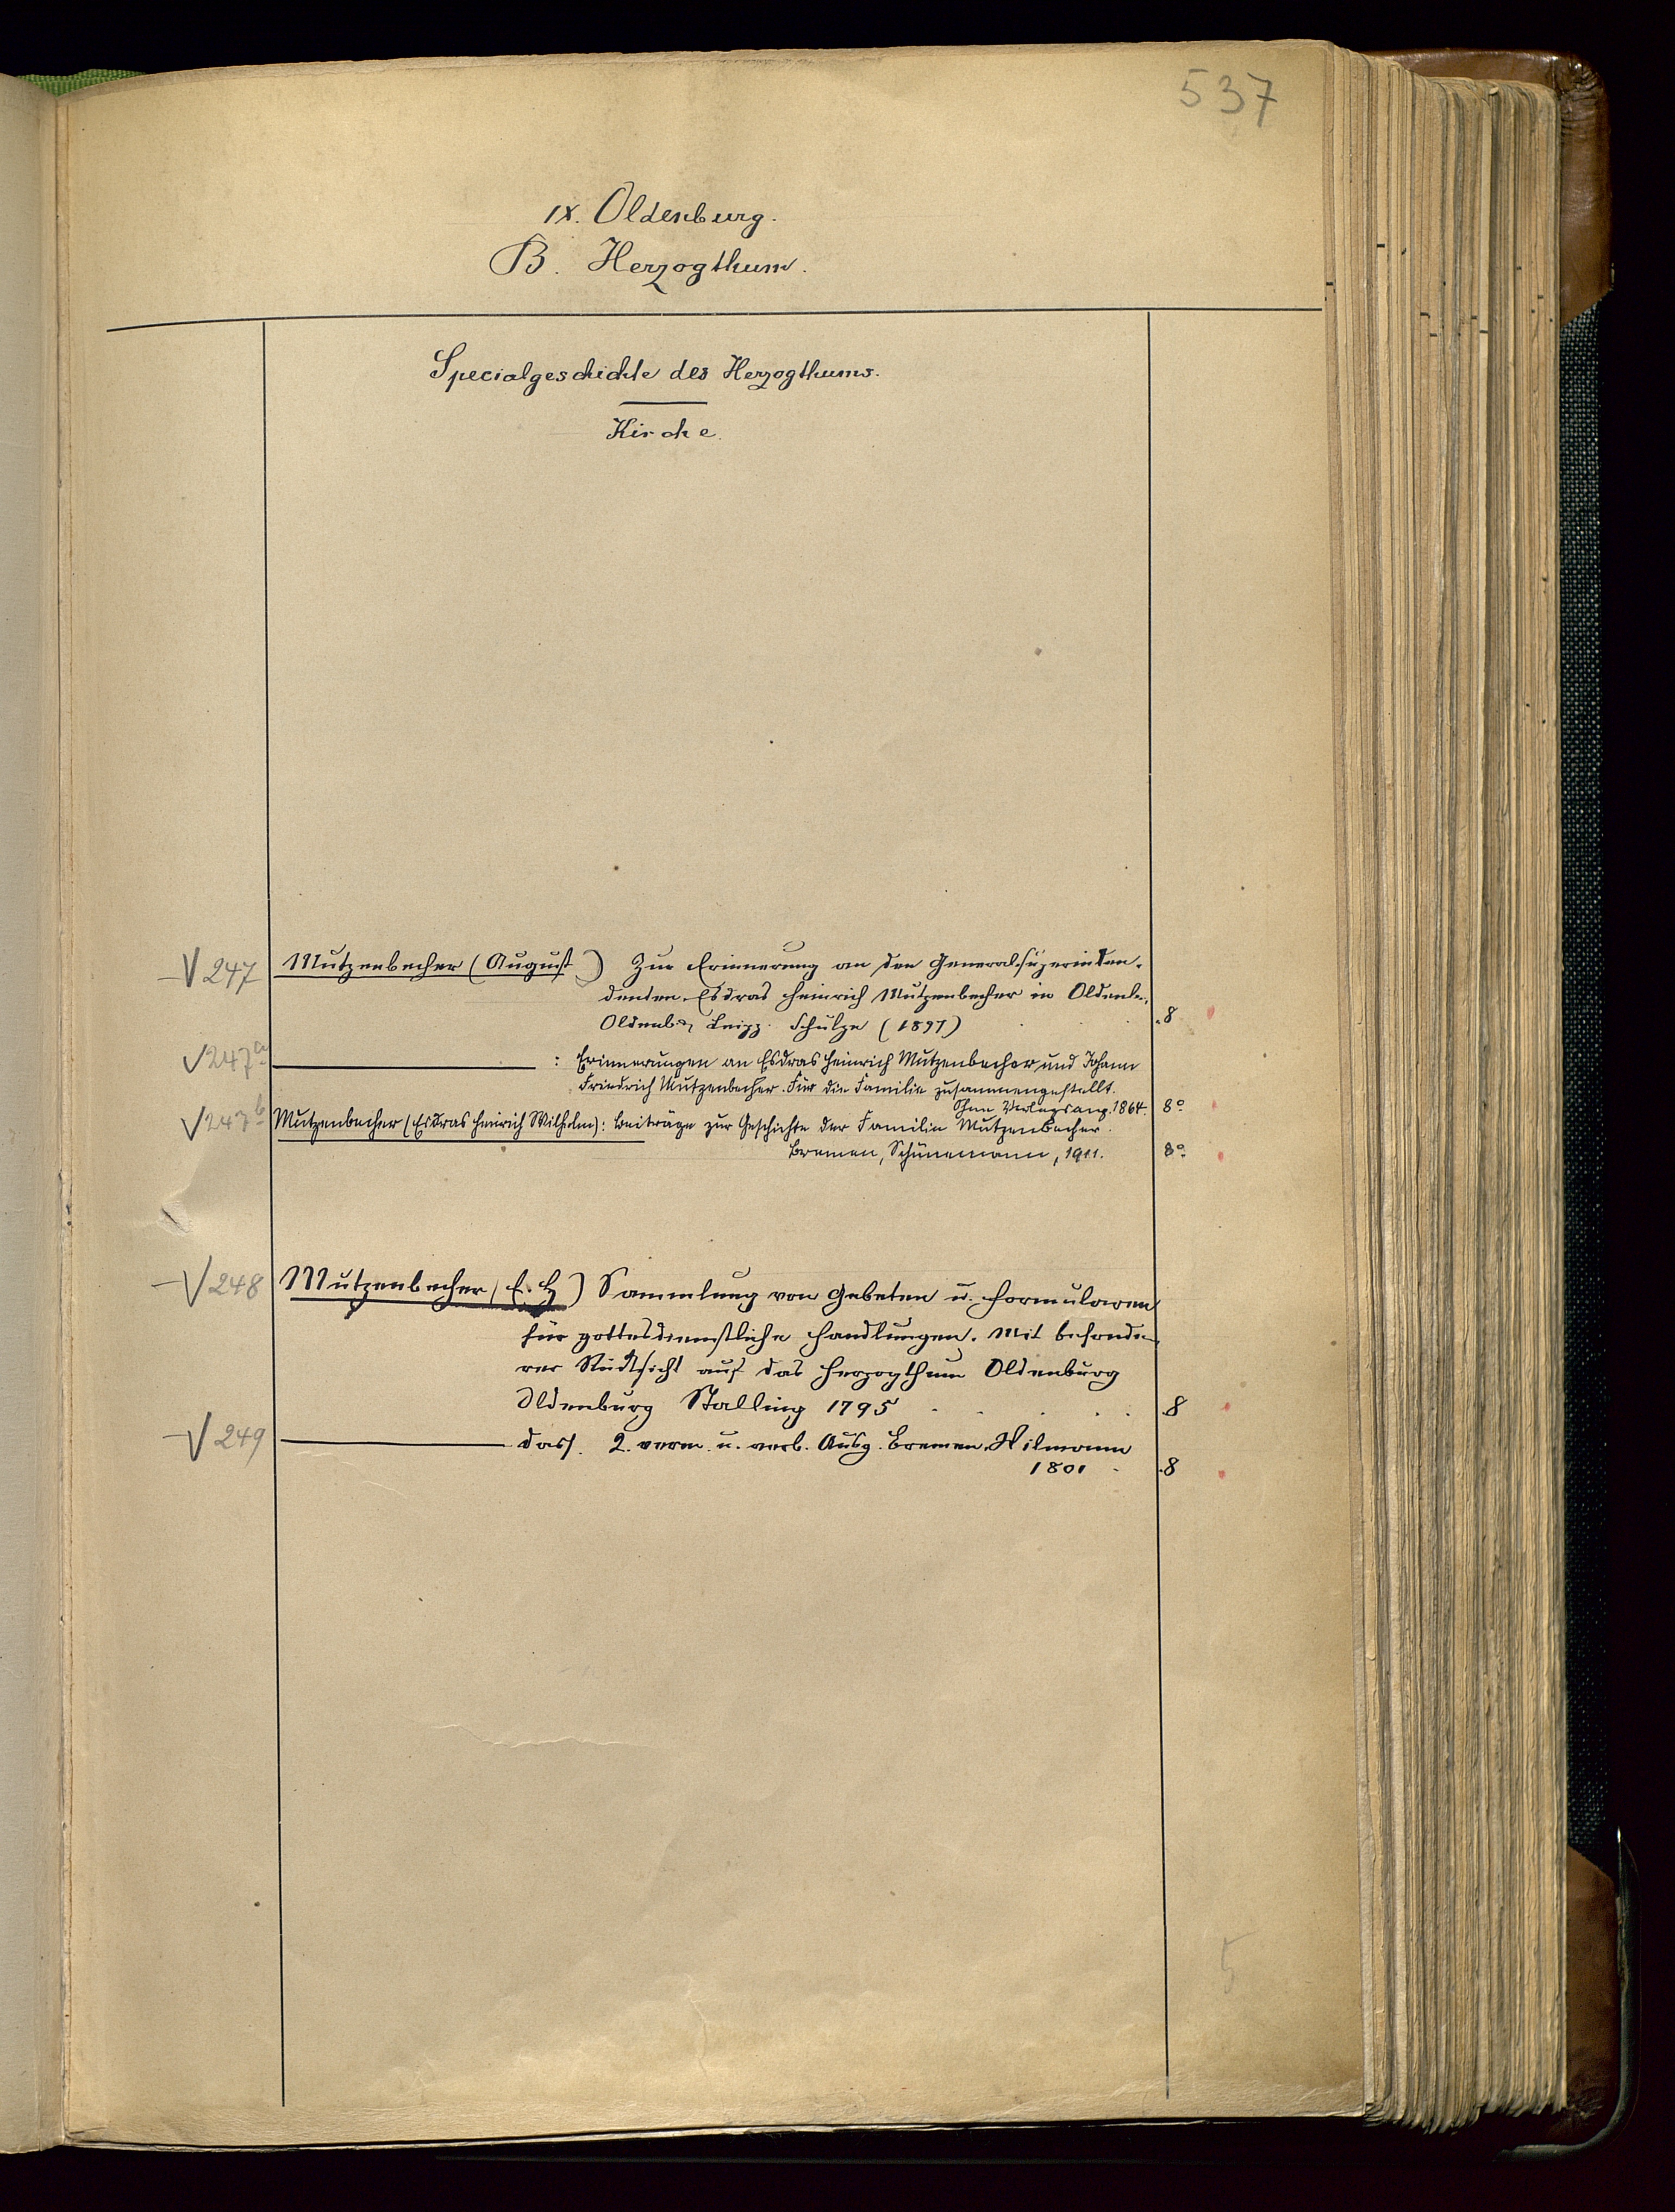 537
IX. Oldenburg.
B. Herzogthum.
Specialgeschichte des Herzogthums.
Kirche.
247 Mutzenbecher (August) Zur Erinnerung an den Generalsuperinten-
denten Esdras Heinrich Mutzenbecher in Oldenb.,
Oldenb. Leipz. Schulze (1897) 8
247a : Erinnerungen an Esdras Heinrich Mutzenbecher und Johann
Friedrich Mutzenbecher. Für die Familie zusammengestellt.
Ohne Verlagsang. 1864. 8°
247b Mutzenbecher (Esdras Heinrich Wilhelm): Beiträge zur Geschichte der Familie Mutzenbecher.
Bremen, Schünemann, 1911. 8°
248 Mutzenbecher (E. H) Sammlung von Gebeten u. Formularen
für gottesdienstliche Handlungen. Mit besonde-
rer Rücksicht auf das Herzogthum Oldenburg
Oldenburg Stalling 1795 8
249 dass. 2. verm. u. verb. Ausg. Bremen, Wilmann
1801 8
5